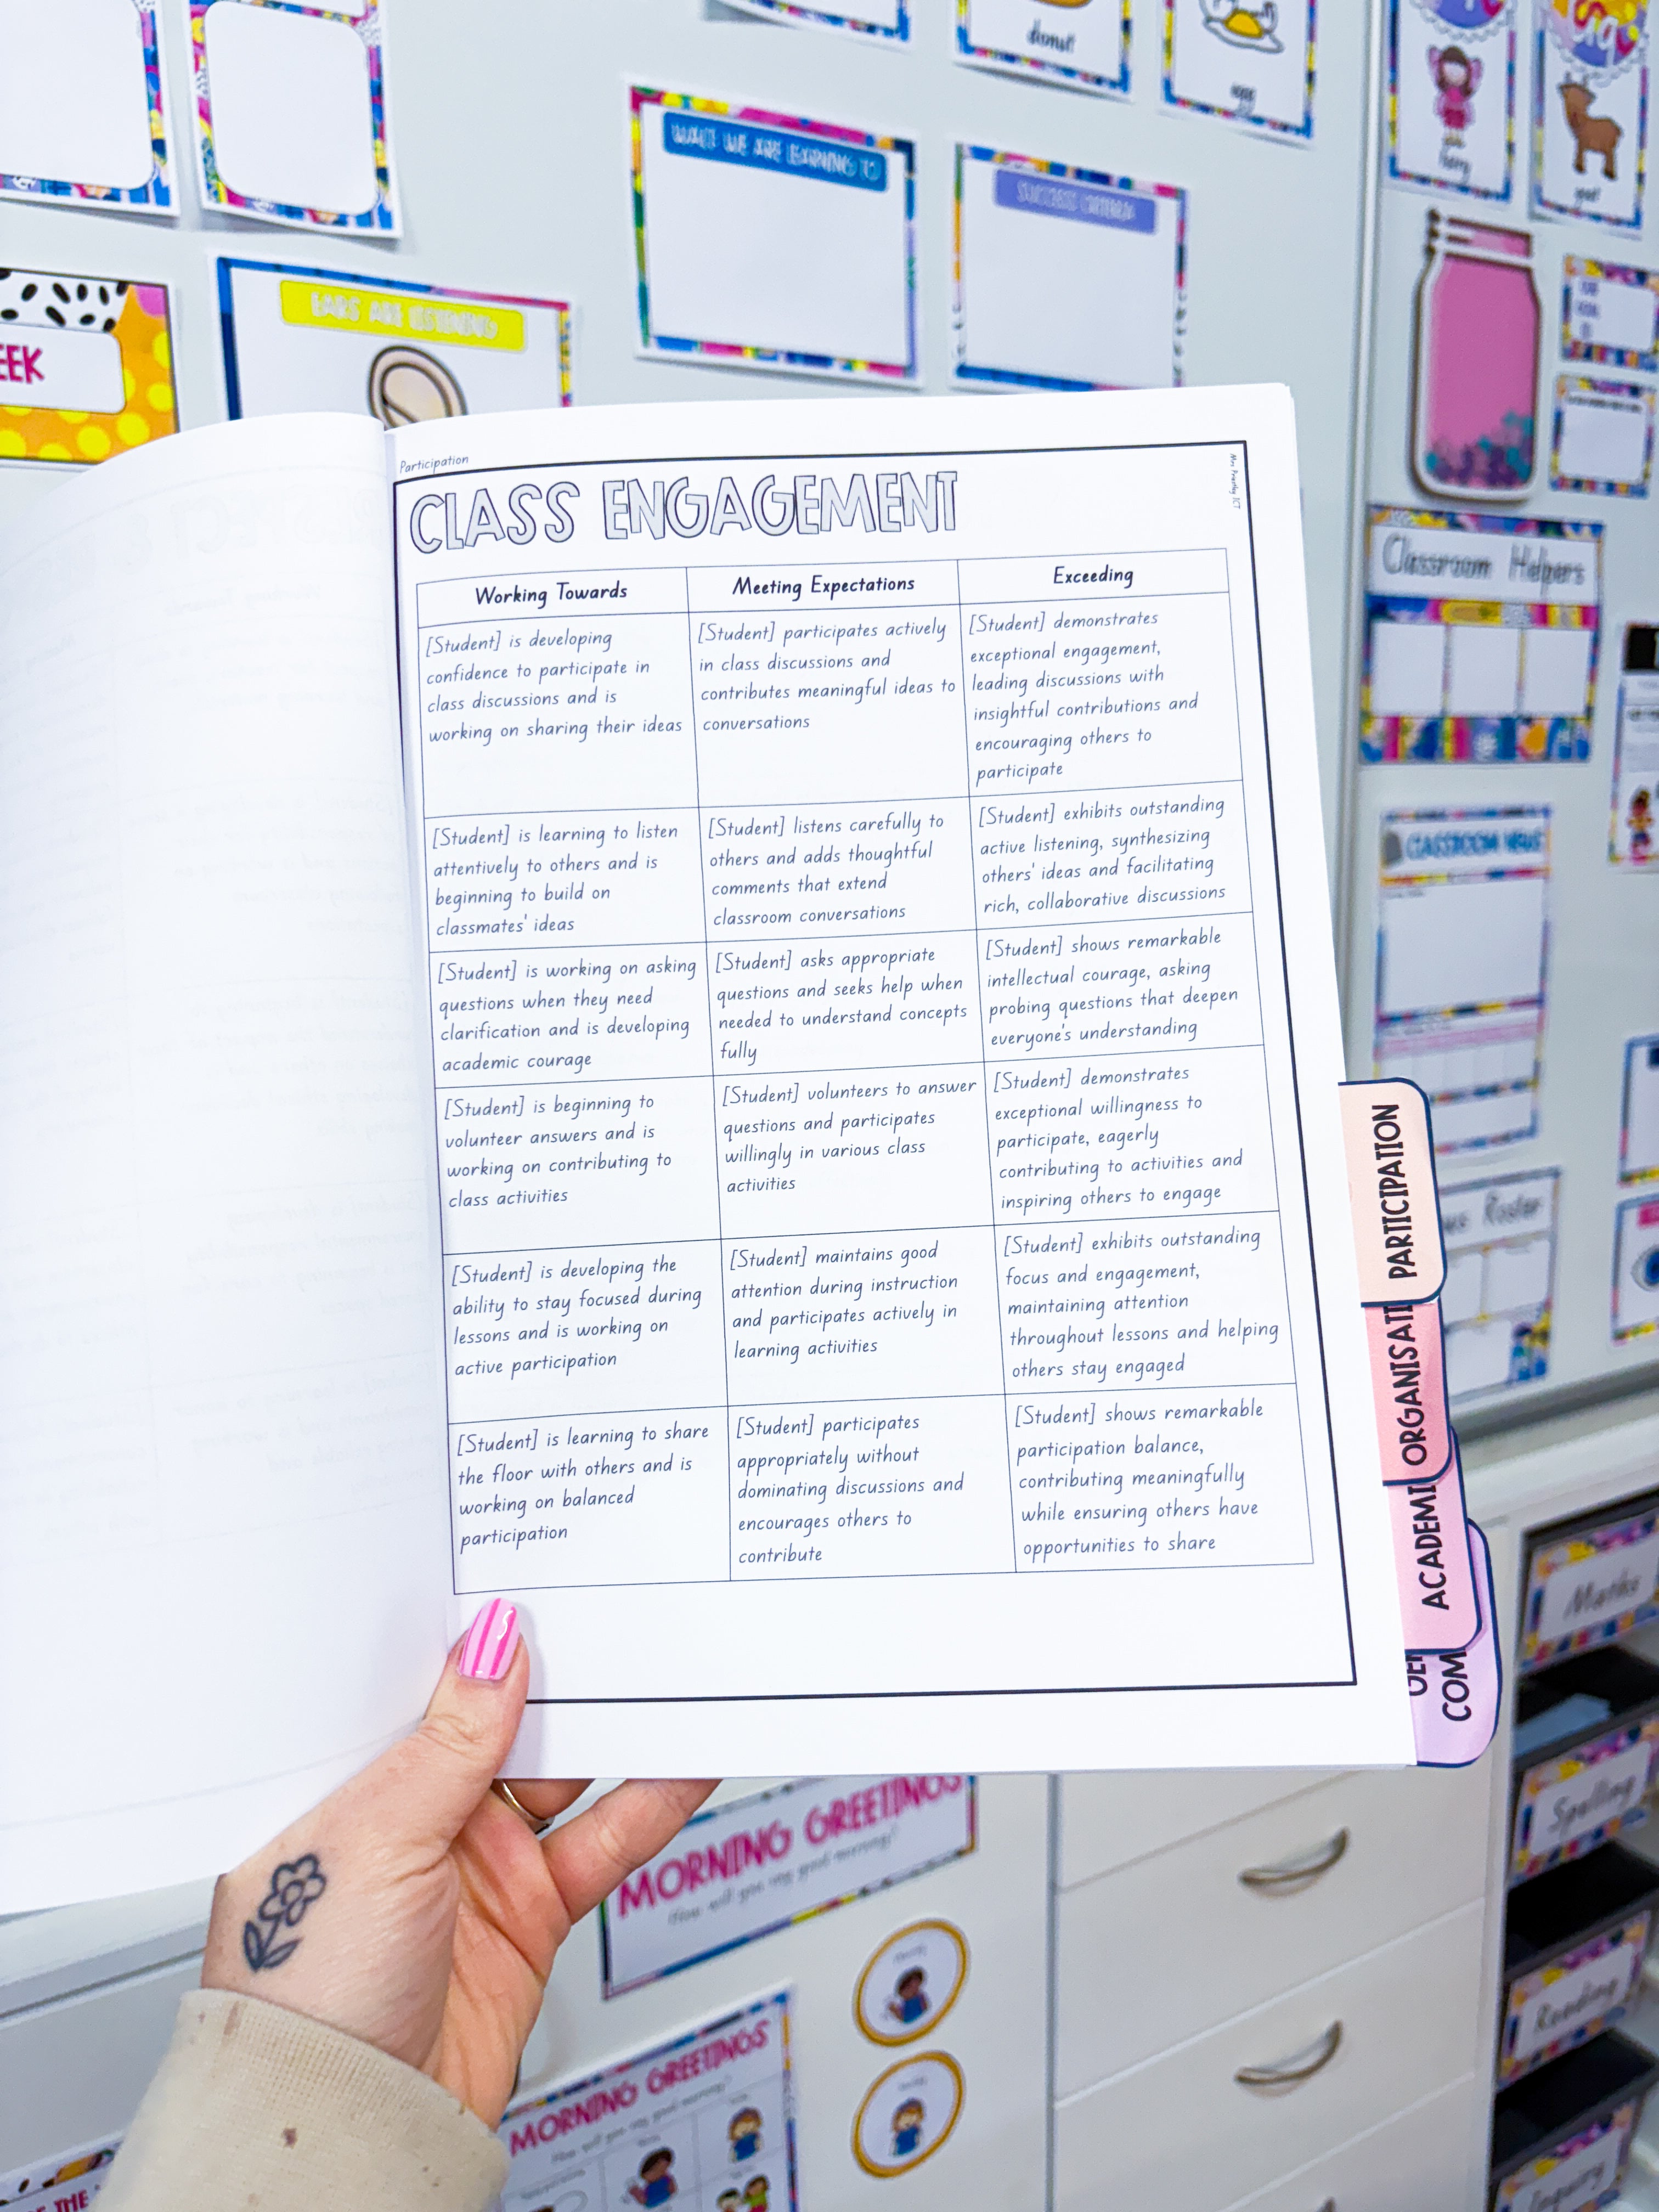 donut
egg
WHAT WE ARE LEARNING TO
SUCCESS CRITERIA
fairy
goat
EARS ARE LISTENING
EEK
Classroom Helpers
CLASSROOM NEWS
Roster
Participation
Mrs Priestley ICT
CLASS ENGAGEMENT
Working Towards
Meeting Expectations
Exceeding
[Student] is developing
confidence to participate in
class discussions and is
working on sharing their ideas
[Student] participates actively
in class discussions and
contributes meaningful ideas to
conversations
[Student] demonstrates
exceptional engagement,
leading discussions with
insightful contributions and
encouraging others to
participate
[Student] is learning to listen
attentively to others and is
beginning to build on
classmates' ideas
[Student] listens carefully to
others and adds thoughtful
comments that extend
classroom conversations
[Student] exhibits outstanding
active listening, synthesizing
others' ideas and facilitating
rich, collaborative discussions
[Student] is working on asking
questions when they need
clarification and is developing
academic courage
[Student] asks appropriate
questions and seeks help when
needed to understand concepts
fully
[Student] shows remarkable
intellectual courage, asking
probing questions that deepen
everyone's understanding
[Student] is beginning to
volunteer answers and is
working on contributing to
class activities
[Student] volunteers to answer
questions and participates
willingly in various class
activities
[Student] demonstrates
exceptional willingness to
participate, eagerly
contributing to activities and
inspiring others to engage
[Student] is developing the
ability to stay focused during
lessons and is working on
active participation
[Student] maintains good
attention during instruction
and participates actively in
learning activities
[Student] exhibits outstanding
focus and engagement,
maintaining attention
throughout lessons and helping
others stay engaged
[Student] is learning to share
the floor with others and is
working on balanced
participation
[Student] participates
appropriately without
dominating discussions and
encourages others to
contribute
[Student] shows remarkable
participation balance,
contributing meaningfully
while ensuring others have
opportunities to share
PARTICIPATION
ORGANISATI
ACADEMI
GEN
COM
Maths
Spelling
Reading
Inquiry
MORNING GREETINGS
How will you say good morning?
MORNING GREETINGS
How will you say good morning?
THE